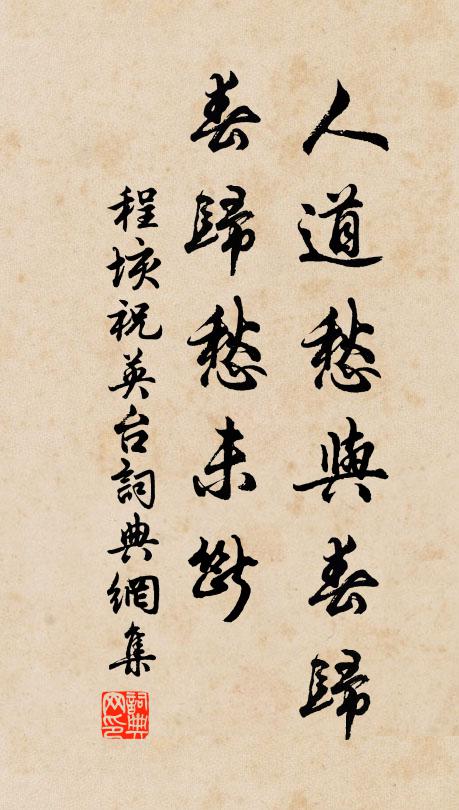 人道愁與春歸
春歸愁未斷
程垓祝英台詞典網集
詞典網印